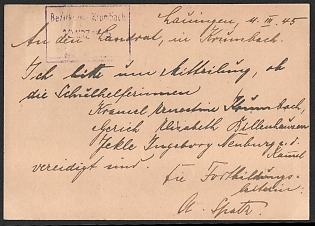 Lauingen, 4. III. 45
Bezirk Krumbach
An den Landrat, in Krumbach.
Ich bitte um Mitteilung, ob
die Schulhelferinnen
Ernestine Krumbach,
Gerich Elisabeth Billenhausen
Jekle Ingeborg Neuburg a. d.
Kamel
vereidigt sind.
Die Fortbildungs-
leiterin:
A. Spatz.